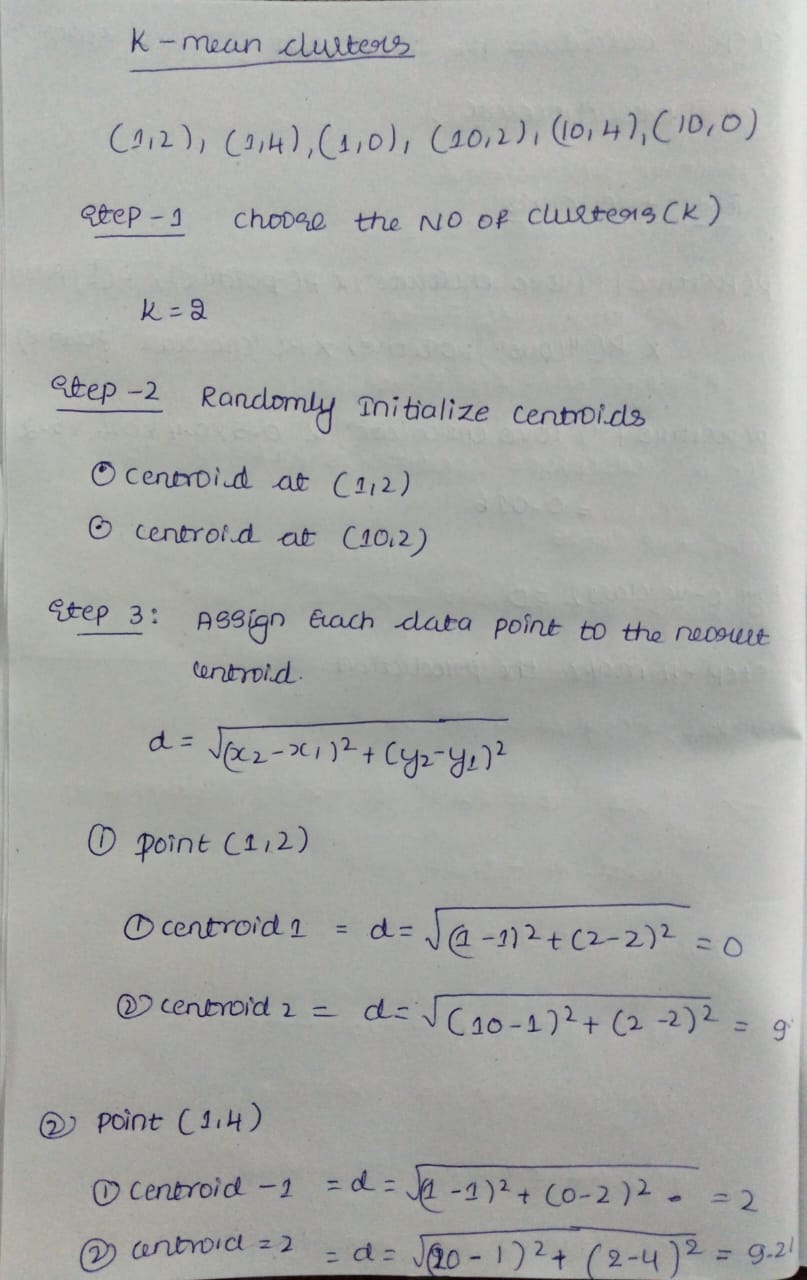 K-mean clusters
(1,2), (1,4), (1,0), (10,2), (10,4), (10,0)
Step-1 choose the NO OF clusters (K)
K=2
Step-2 Randomly Initialize centroids
① centroid at (1,2)
② centroid at (10,2)
Step 3: Assign Each data point to the nearest
centroid.
d = √(x₂-x₁)² + (y₂-y₁)²
① point (1,2)
① centroid 1 = d = √(1-1)²+(2-2)² = 0
② centroid 2 = d = √(10-1)²+(2-2)² = 9
② point (1,4)
① centroid -1 = d = √(1-1)²+(0-2)² = 2
② centroid = 2 = d = √(10-1)²+(2-4)² = 9.21